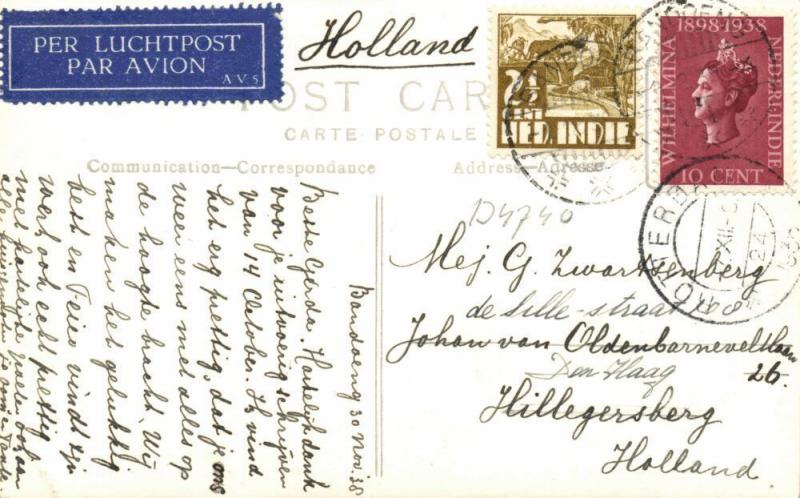 PER LUCHTPOST
PAR AVION
AVS
Holland
POST CAR
CARTE POSTALE
Communication—Correspondance
Address—Adresse
2½
CENT
NED. INDIE
1898-1938
WILHELMINA
NED:R:INDIE
10 CENT
Bandoeng 30 Nov. 38
Beste Gerda, Hartelijk dank
voor je uitvoerig schrijven
van 14 October. Ik vind
het erg prettig, dat je ons
weer eens met alles op
de hoogte bracht. Wij
maken het gelukkig
best en Feie vindt zijn
werk ook echt prettig
met hartelijke groeten ook aan
alle
D4740
Mej. G. Zwartsenberg
de Lille-straat
Johan van Oldenbarneveltlaan
26.
Den Haag
Hillegersberg
Holland.